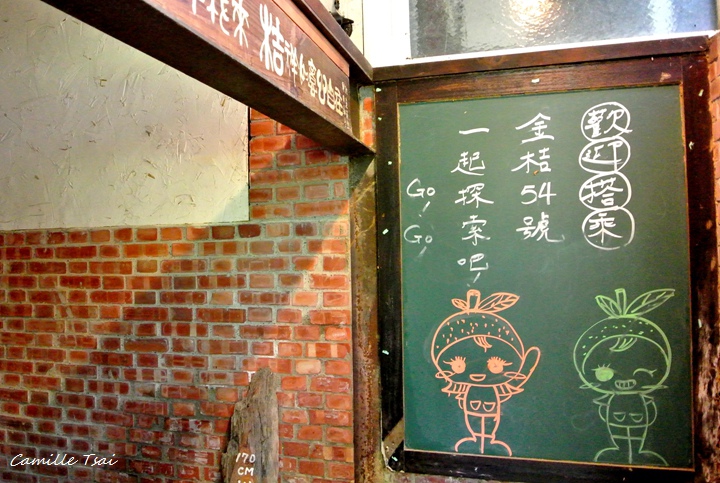 歡迎搭乘
金桔54號
一起探索吧!
Go!
Go!
來桔
170
CM
Camille Tsai